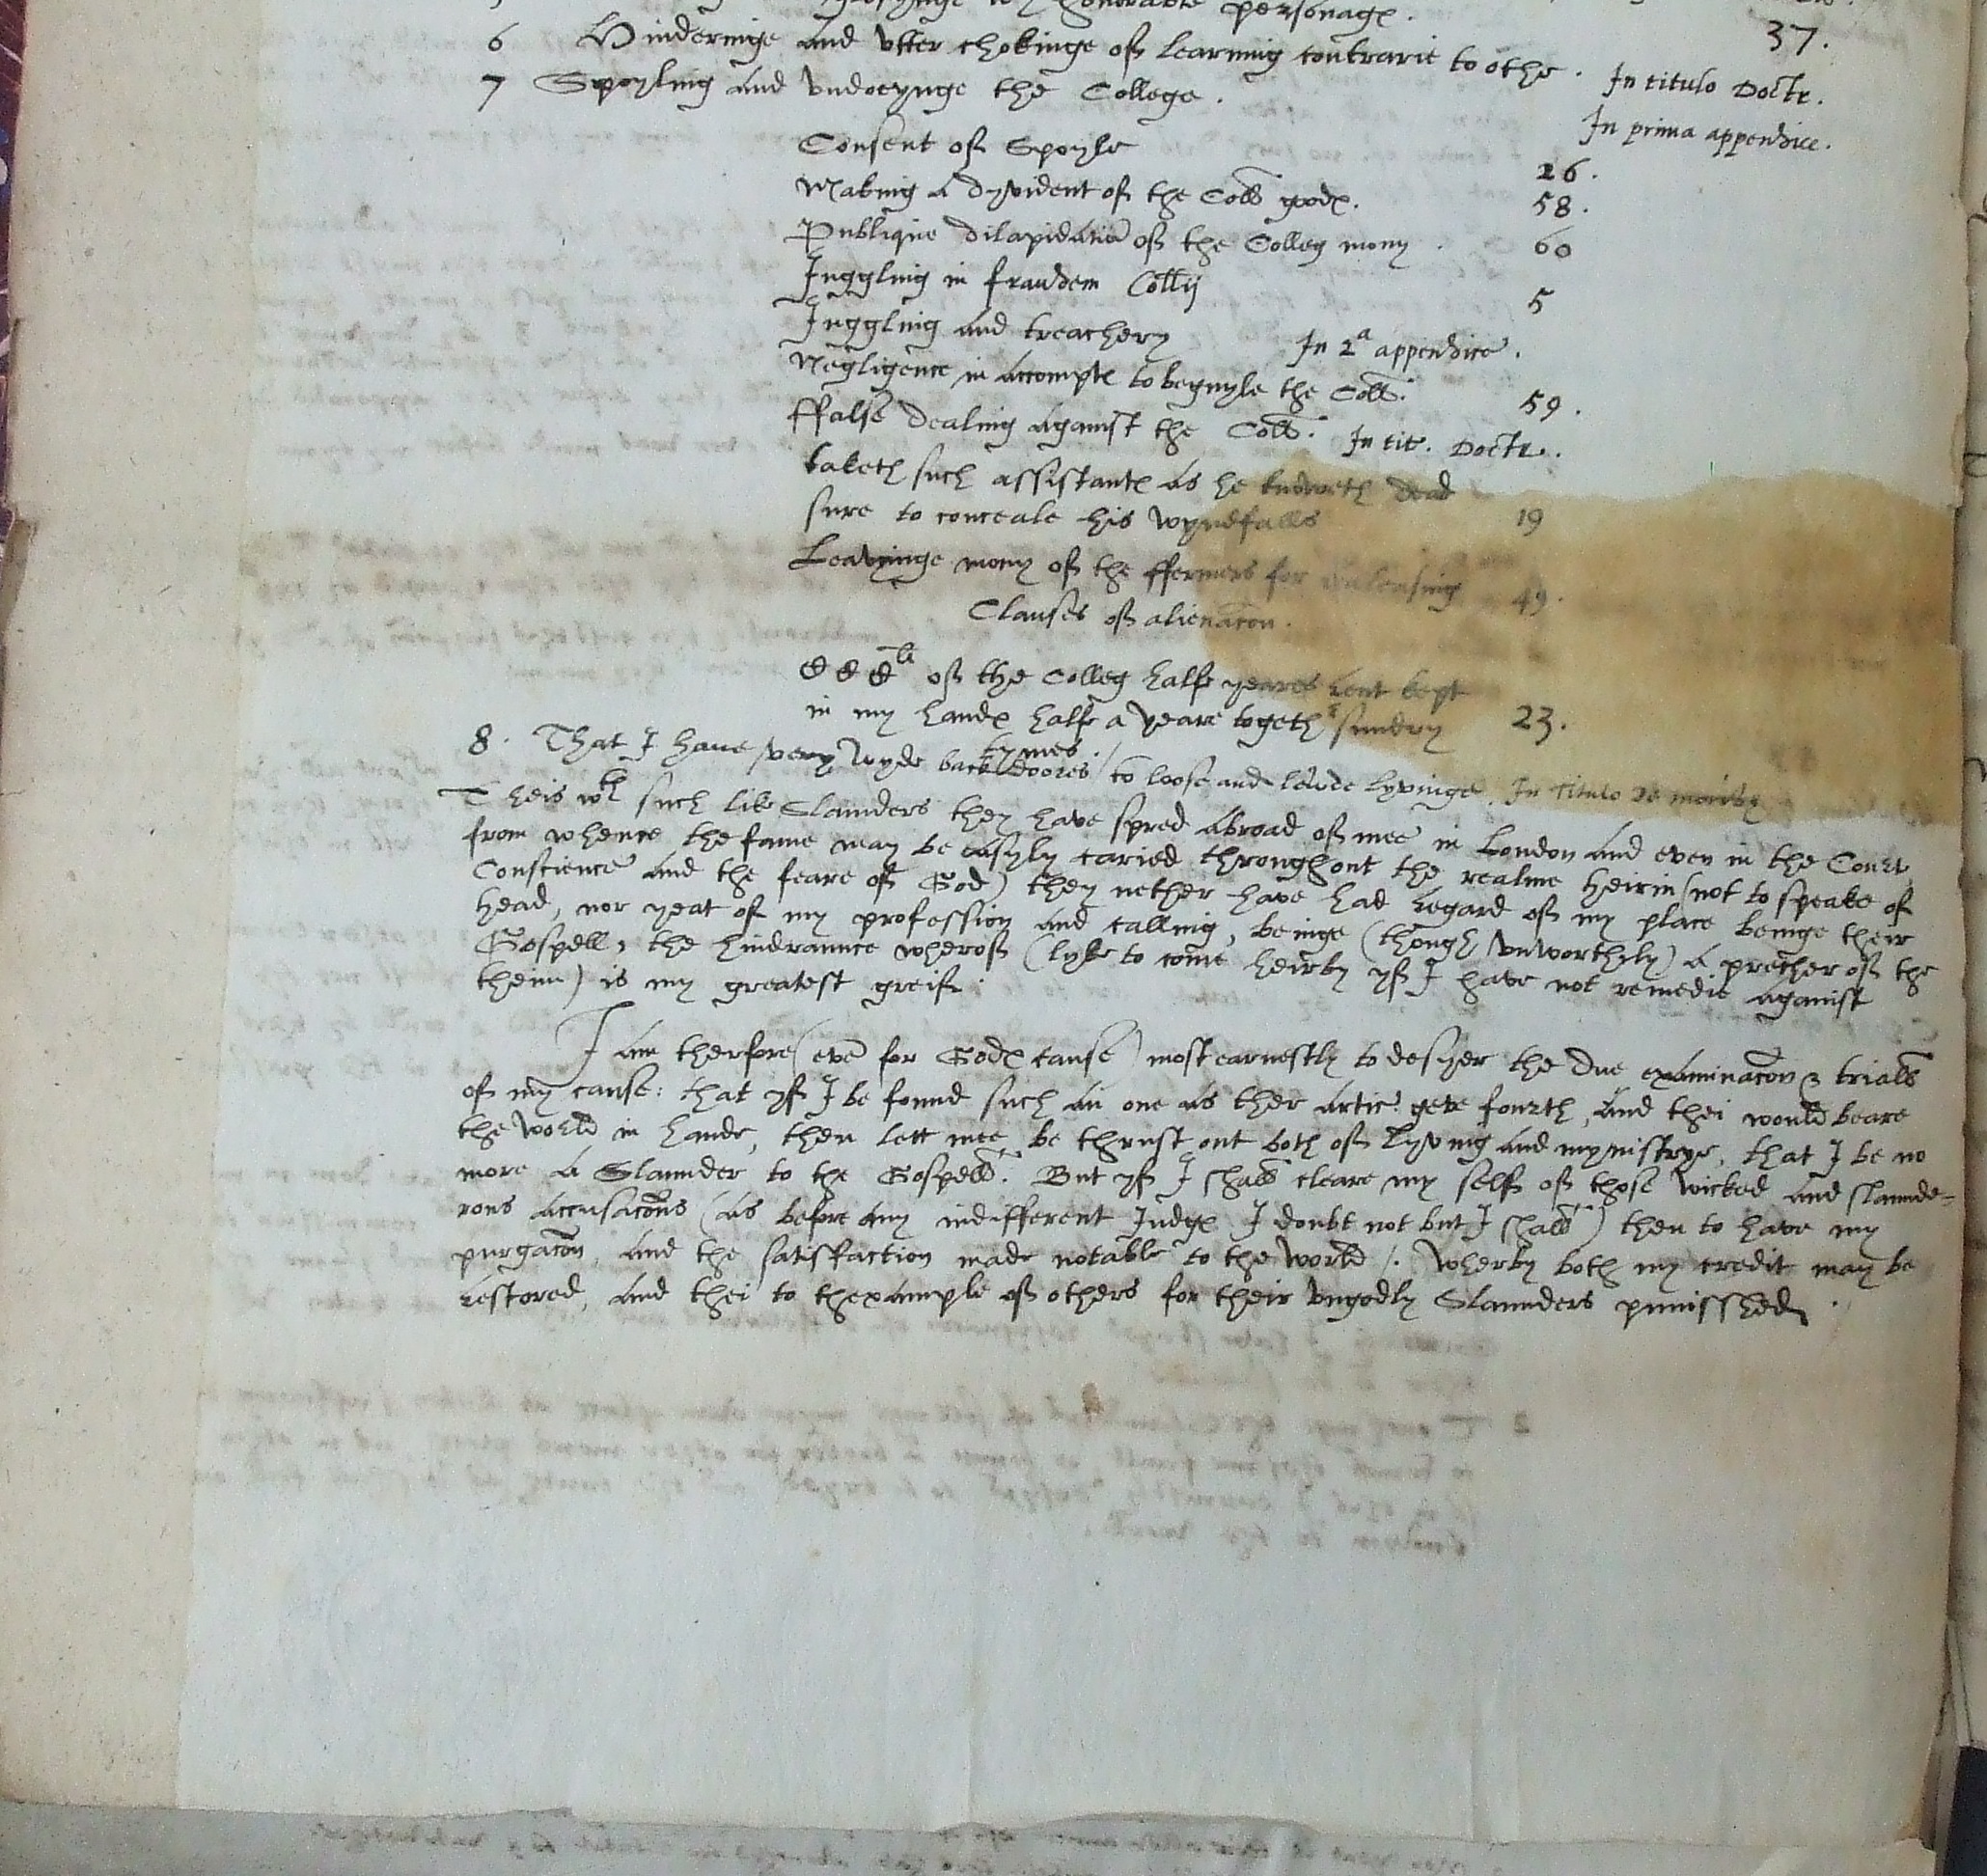 personage.
37.
6 Hinderinge and vtter chokinge of learning contrarie to othe. In titulo Doctr.
7 Spoyling and vndoeynge the College. In prima appendice.
Consent of Spoyle 26.
Making a dyvident of the Coll goodes. 58.
Publique dilapidatiō of the Colleg mony. 60
Juggling in fraudem Collij 5
Juggling and treachery In 2a appendice.
Negligence in accomptes to beguyle the Coll. 59.
ffalse dealing against the Coll. In tit. Doctr.
taketh such assistantes as he knoweth dead
sure to conceale his wyndfalls 19
Leavyinge mony of the ffermers for releasing 49.
Clauses of alienacōn.
CCCli of the Colleg halfe yeares rent kept
in my handes halfe a yeare togethr sundry 23.
tymes.
8. That I haue very wyde back doores to loose and lewde lyvinge. In titulo de moribz
Theis wth such like Slaunders they have spred abroad of mee in London and even in the Court
from whence the fame may be easyly caried throughout the realme heirin (not to speake of
Conscience and the feare of God) they nether have had regard of my place beinge their
head, nor yeat of my profession and calling, beinge (though vnworthyly) a precher of the
Gospell, the hindraunce wherof (lyke to come heirby yf I have not remedie against
theim) is my greatest greif:
I am therfore (evē for Godes cause) most earnestly to desyer the due examinacōn & triall
of my cause: that yf I be found such an one as ther artic: sete fourth, and thei would beare
the World in hande, then lett mee be thrust out both of lyving and mynistrye, that I be no
more a Slaunder to the Gospell. But yf I shall cleare my self of those wicked and slaunde=
rous accusacōns (as before any indifferent Judge I doubt not but I shall) then to have my
purgacōn, and the satisfaction made notable to the World /. Wherby both my credit may be
restored, and thei to thexample of others for their vngodly Slaunders punisshed.